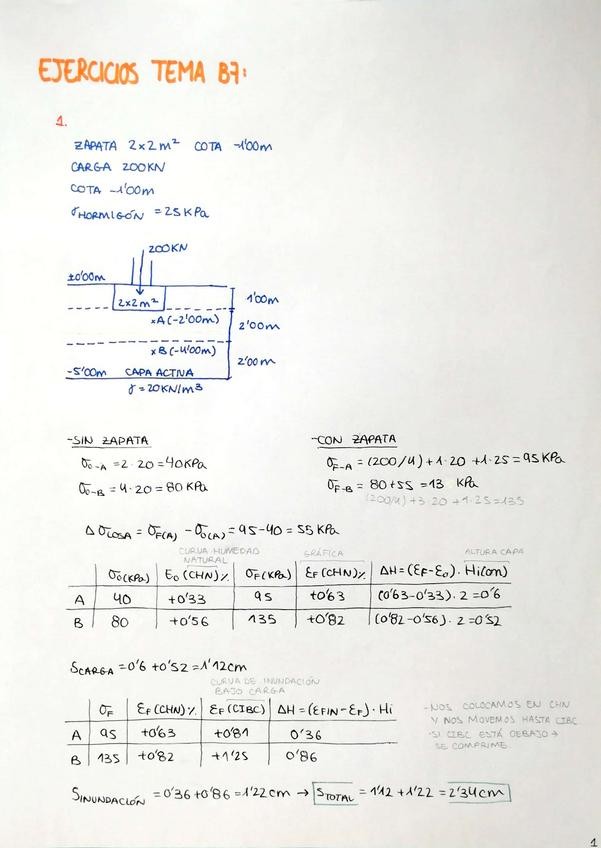 EJERCICIOS TEMA B7:
1.
ZAPATA 2x2m² COTA -1'00m
CARGA 200KN
COTA -1'00m
γHORMIGÓN = 25KPa
200KN
±0'00m
2x2m²
1'00m
xA(-2'00m)
2'00m
xB(-4'00m)
2'00m
-5'00m CAPA ACTIVA
γ=20KN/m³
-SIN ZAPATA
σ0-A = 2·20=40KPa
σ0-B = 4·20=80 KPa
-CON ZAPATA
σF-A = (200/4)+1·20+1·25=95KPa
σF-B = 80+55=13 KPa
(200/4)+3·20+1·25=135
ΔσLOSA = σF(A) - σ0(A) = 95-40 = 55 KPa
CURVA HUMEDAD NATURAL GRÁFICA ALTURA CAPA
σ0(KPa) E0(CHN)% σF(KPa) EF(CHN)% ΔH=(EF-E0)·Hi(cm)
A 40 +0'33 95 +0'63 (0'63-0'33)·2=0'6
B 80 +0'56 135 +0'82 (0'82-0'56)·2=0'52
SCARGA = 0'6+0'52=1'12cm
CURVA DE INUNDACIÓN
BAJO CARGA
σF EF(CHN)% EF(CIBC) ΔH=(EFIN-EF)·Hi
A 95 +0'63 +0'81 0'36
B 135 +0'82 +1'25 0'86
-NOS COLOCAMOS EN CHN
Y NOS MOVEMOS HASTA CIBC
·SI CIBC ESTÁ DEBAJO→
SE COMPRIME
SINUNDACIÓN = 0'36+0'86=1'22cm → STOTAL = 1'12+1'22=2'34cm
1